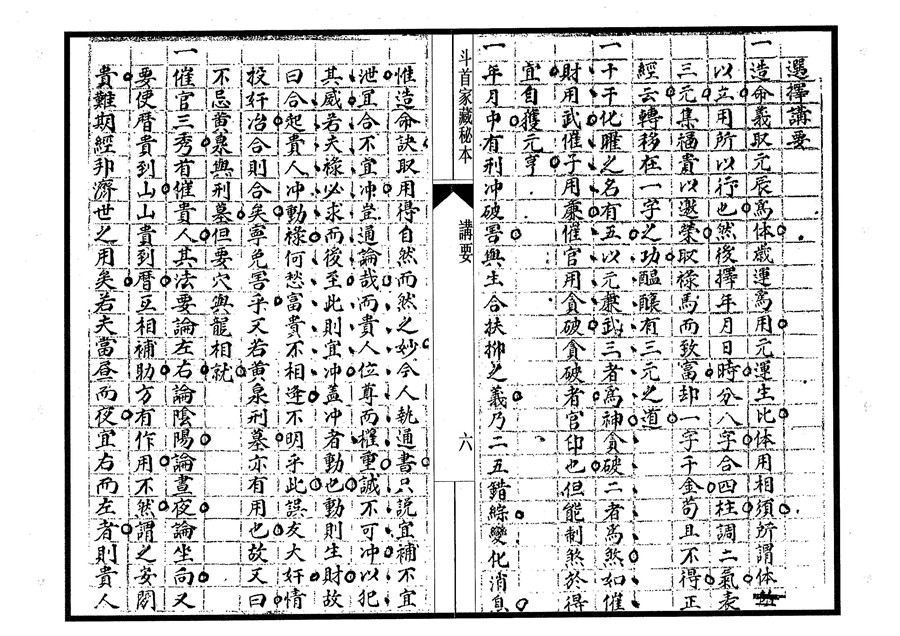 選擇講要
一造命義取元辰為体歲運為用元運生比体用相須所謂体
以立用所以行也然後擇年月日時分八字合四柱調二氣表
三元集福貴以邀榮取祿馬而致富却一字千金苟且不得正
經云轉移在一字之功醞釀有三元之道
一十干化曜之名有五以元廉武三者為神貪破二者為煞如催
財用武催子用廉催官用貪破貪破者官印也但能制煞於得
宜自獲元亨
一年月中有刑冲破害與生合扶抑之義乃二五錯綜變化消息
斗首家藏秘本
講要
六
惟造命訣取用得自然而然之妙今人執通書只説宜補不宜
泄宜合不宜冲豈通論哉而貴人位尊而權重誠不可冲以犯
其威若夫祿必求而後至此則宜冲盖冲者動也動則生財故
曰合起貴人冲動祿何愁富貴不相逢不明乎此誤友大奸情
投奸冶合則合矣寧免害乎又若黄泉刑墓亦有用也故又曰
不忌黄泉與刑墓但要穴與龍相就
一催官三秀有催貴人其法要論左右論陰陽論晝夜論坐向又
要使曆貴到山山貴到曆互相補助方有作用不然謂之安閒
貴難期經邦濟世之用矣若夫當昼而夜宜右而左者則貴人